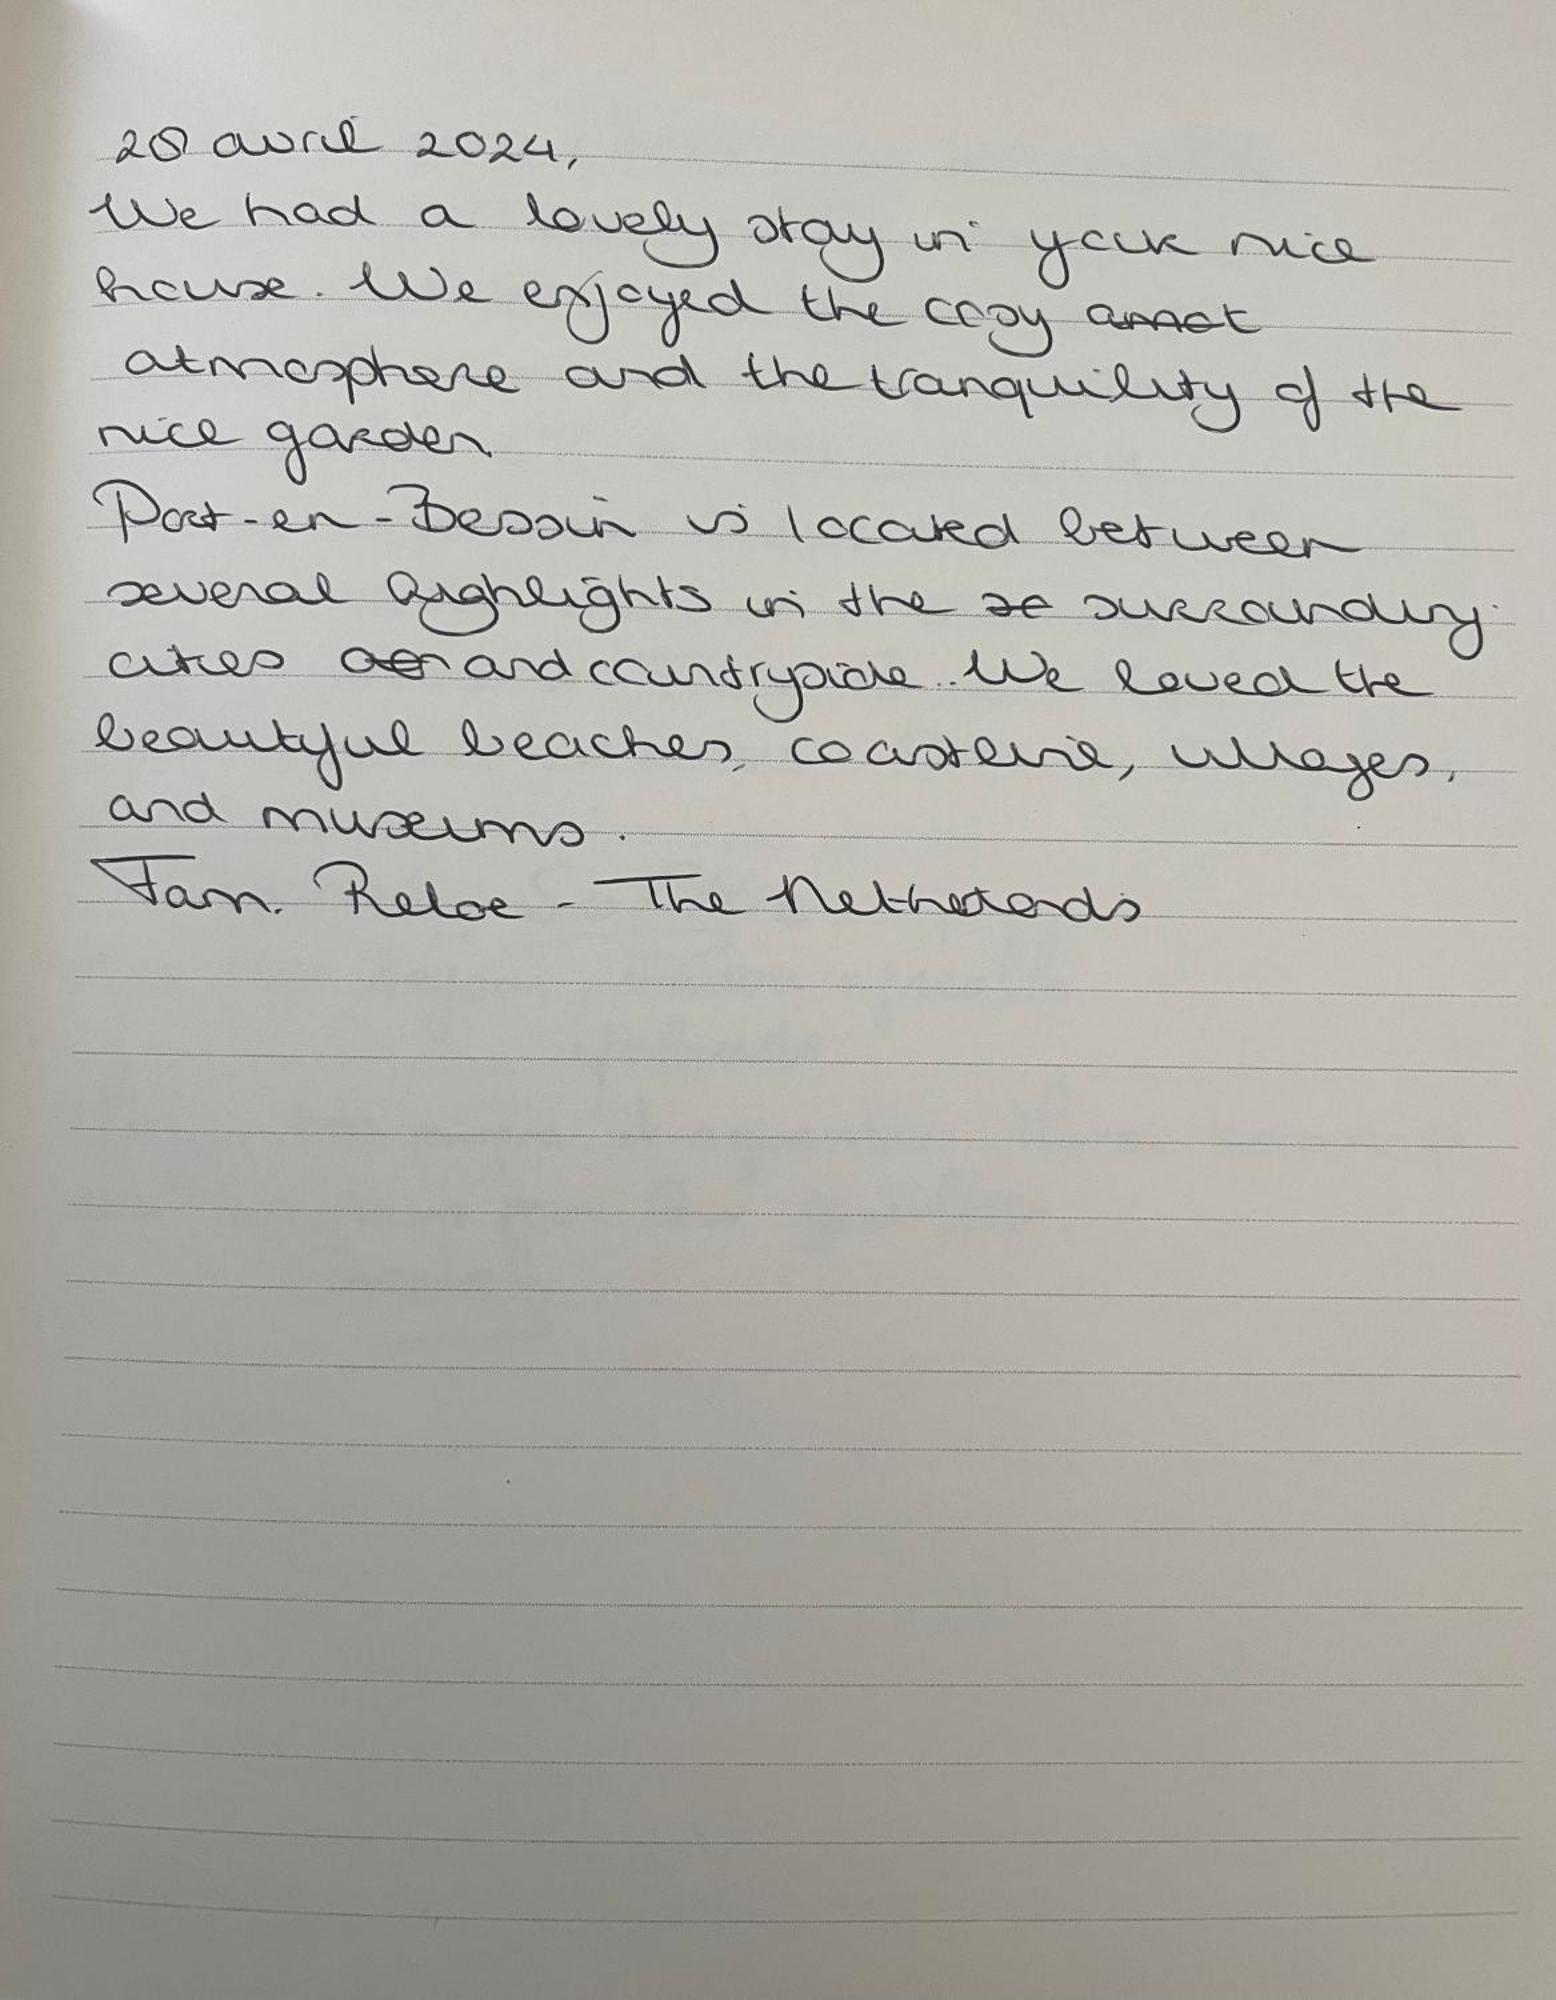 28 avril 2024,
We had a lovely stay in your nice
house. We enjoyed the cosy
atmosphere and the tranquility of the
nice garden.
Port-en-Bessin is located between
several highlights in the surrounding
cities and countryside. We loved the
beautiful beaches, coastline, villages,
and museums.
Fam. Reloe - The Netherlands